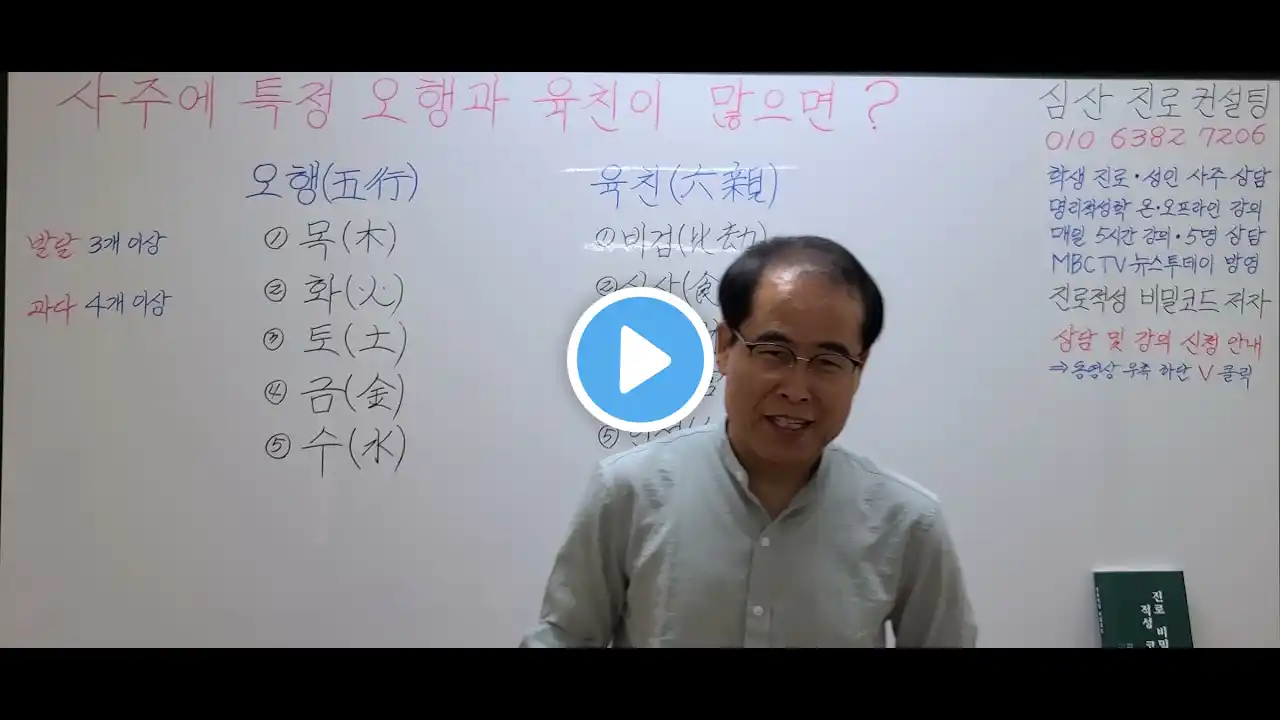 사주에 특정 오행과 육친이 많으면 ?
오행(五行)
발달 3개 이상
과다 4개 이상
① 목(木)
② 화(火)
③ 토(土)
④ 금(金)
⑤ 수(水)
육친(六親)
① 비겁(比劫)
② 식상(食
⑤
심산 진로 컨설팅
010 6382 7206
학생 진로·성인 사주 상담
명리적성학 온·오프라인 강의
매일 5시간 강의·5명 상담
MBC TV 뉴스투데이 방영
진로적성 비밀코드 저자
상담 및 강의 신청 안내
⇒ 동영상 우측 하단 V 클릭
진로
적성
비밀
코